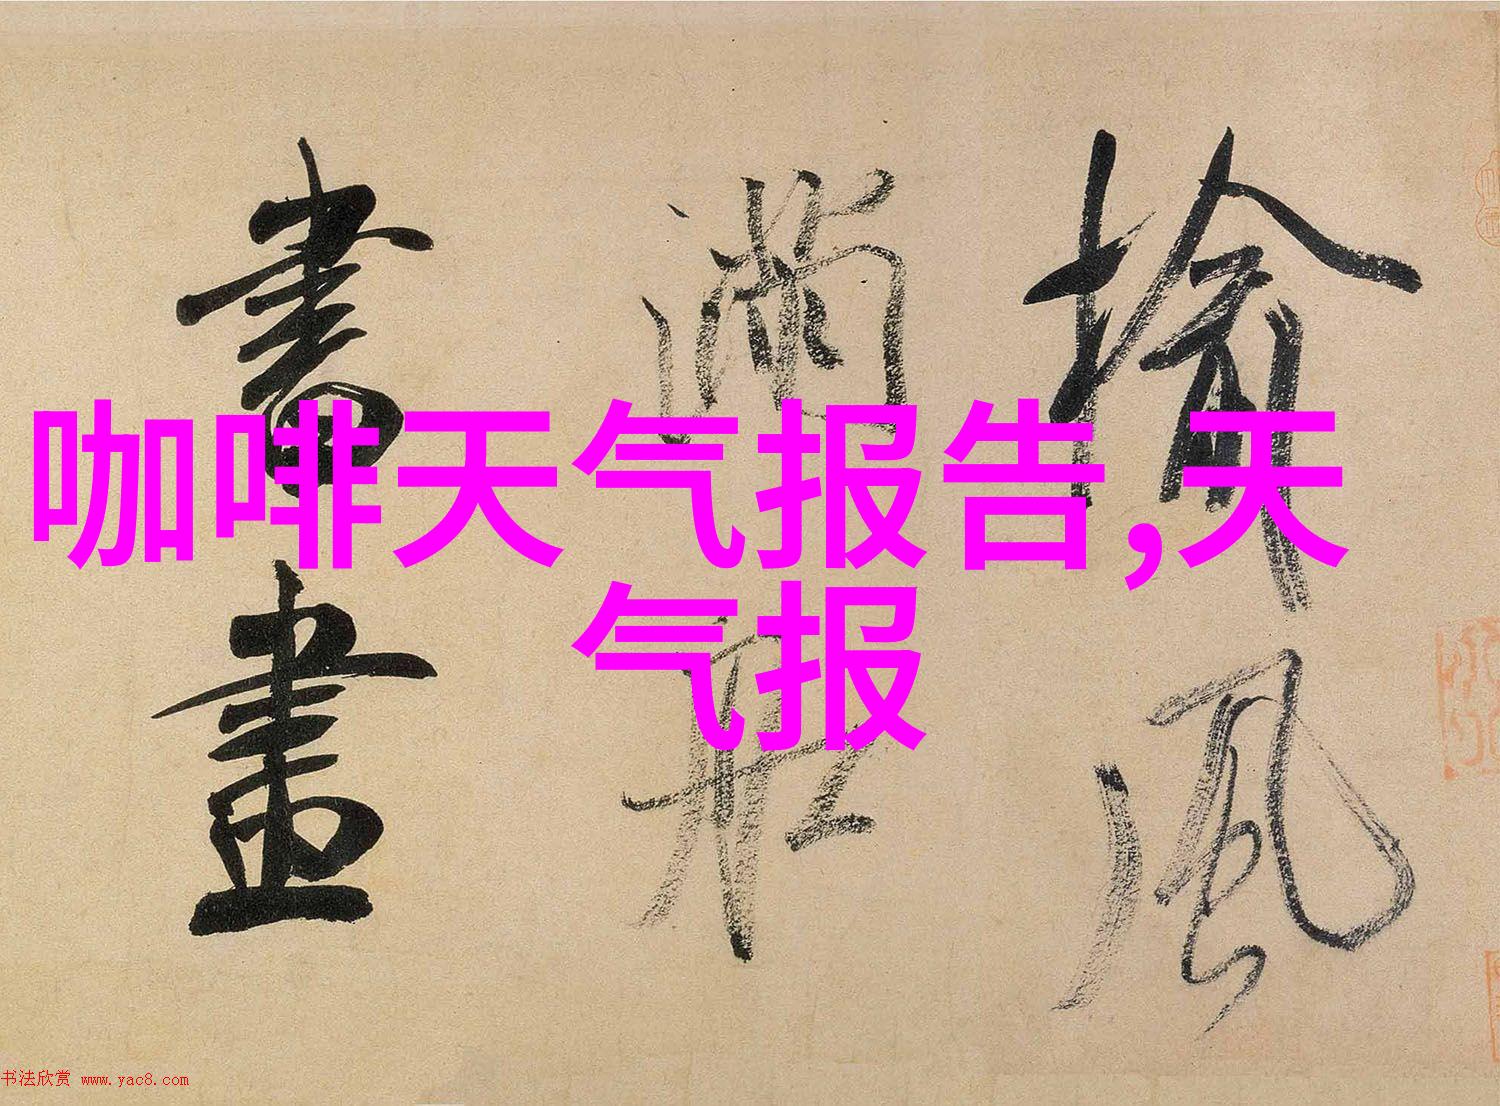 咖啡天气报告,天
气报
揄風
滿船
書畫
书法欣赏 www.yac8.com